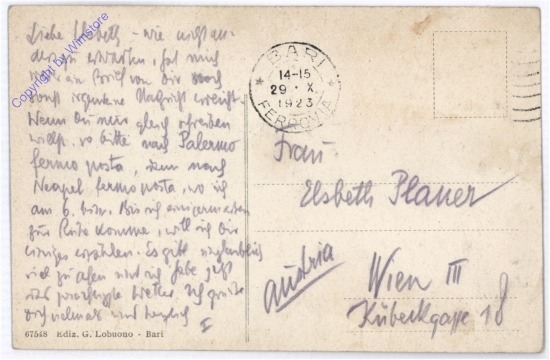 Liebe Elsbeth – wie nicht an-
ders zu erwarten, hat mich
weder ein Brief von Dir noch
sonst irgendeine Nachricht erreicht.
Wenn Du mir gleich schreiben
willst, so bitte nach Palermo
fermo posta, dann nach
Neapel fermo posta, wo ich
am 6. bin. Bis ich einigermaßen
zur Ruhe komme, will ich Dir
einiges erzählen. Es gibt unglaublich
viel zu sehen und ich habe jetzt
Wetter. Ich grüße
Dich vielmals und herzlich
67548 Ediz. G. Lobuono - Bari
BARI
14-15
29 · X.
1923
FERROVIA
Frau
Elsbeth Planer
Wien III
Kübeckgasse 18
Austria
Copyright by Winstore